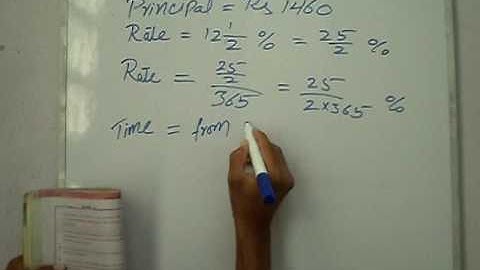 Principal = Rs 1460
Rate = 12 1/2 % = 25/2 %
Rate = 25/2/365 = 25/2×365 %
Time = from